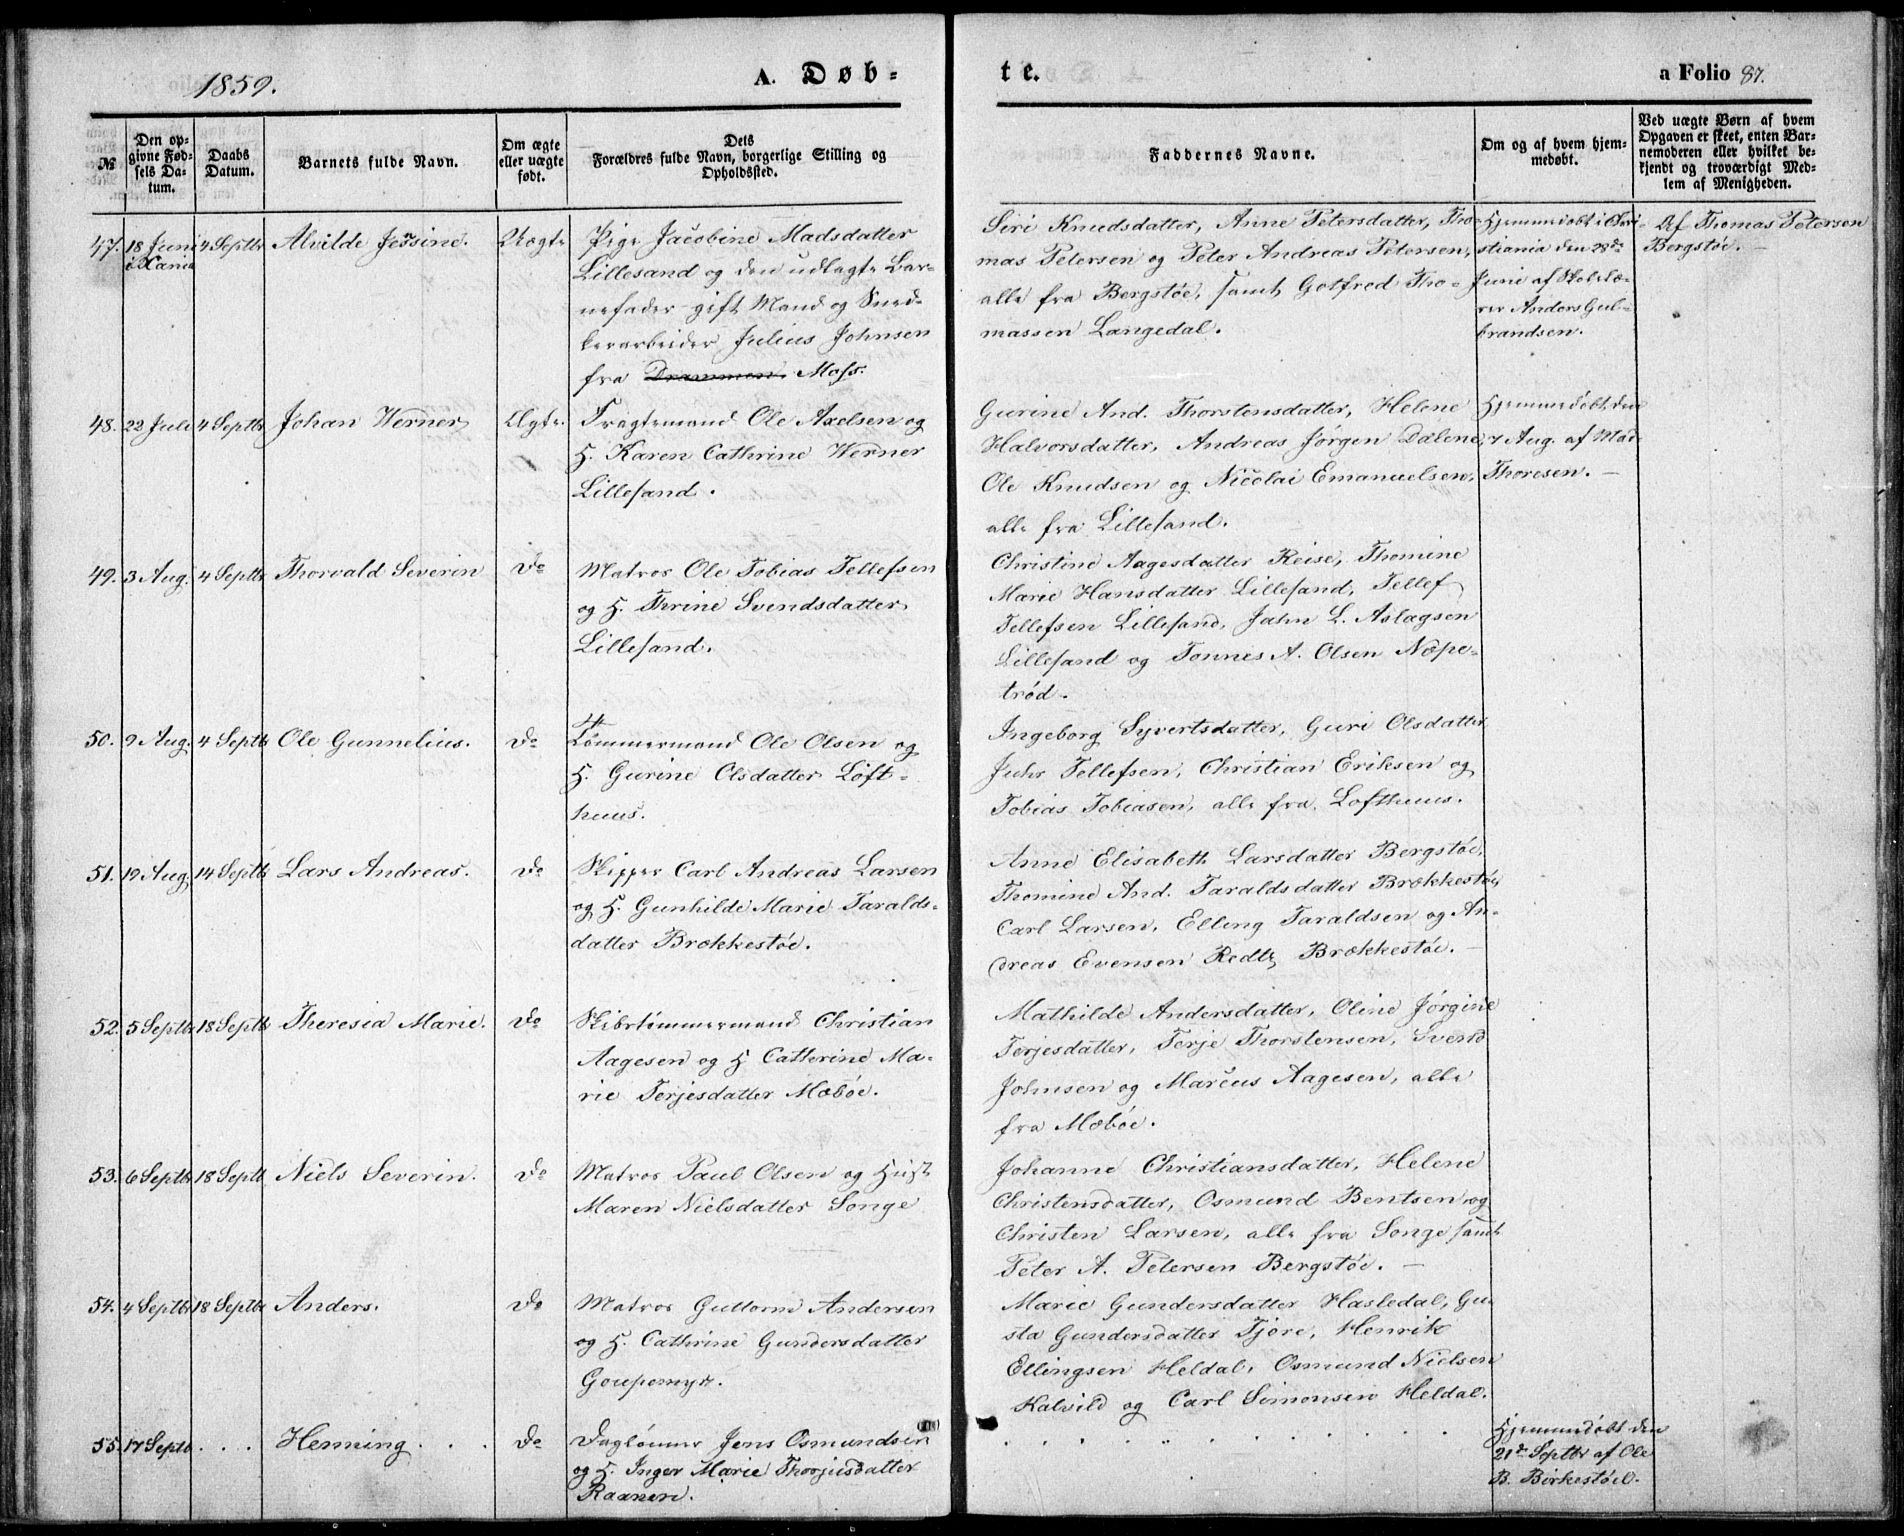 1859.
A. Døb-
te.
a Folio 87.
№
Den op-
givne Fød-
sels Da-
tum.
Daabs
Datum.
Barnets fulde Navn.
Om ægte
eller uægte
født.
Dets
Forældres fulde Navn, borgerlige Stilling og
Opholdssted.
Faddernes Navne.
Om og af hvem hjem-
medøbt.
Ved uægte Børn af hvem
Opgaven er skeet, enten Bar-
nemoderen eller hvilket be-
kjendt og troværdigt Med-
lem af Menigheden.
47. 18 Juni 4 Septbr Alvilde Jessine. Uægte
Pige Jacobine Madsdatter
Lillesand og den udlagte Bar-
nefader gift Mand og Sned-
kerarbeider Julius Johnsen
fra Drammen. Moss.
Siri Knudsdatter, Anne Petersdatter, Tho-
mas Petersen og Peter Andreas Petersen,
alle fra Bergstøe, samt Gotfred Tho-
massen Langedal.
Hjemmedøbt i Chri-
stiania den 28de
Juni af Skolelæ-
rer Anders Gul-
brandsen.
Af Thomas Petersen
Bergstøe. —
48. 22 Juli 4 Septbr Johan Werner Ægte.
Fragtemand Ole Axelsen og
H. Karen Cathrine Werner
Lillesand.
Gurine And. Thorstensdatter, Helene
Halvorsdatter, Andreas Jørgen Dalene,
Ole Knudsen og Nicolai Emanuelsen,
alle fra Lillesand.
Hjemmedøbt den
7 Aug. af Mad.
Thoresen. —
49. 3 Aug. 4 Septbr Thorvald Severin Do
Matros Ole Tobias Tellefsen
og H. Thrine Svendsdatter
Lillesand.
Christine Aagesdatter Reise, Thomine
Marie Hansdatter Lillesand, Tellef
Tellefsen Lillesand, Jahn L. Aslagsen
Lillesand og Tønnes A. Olsen Næpe-
trød.
50. 9 Aug. 4 Septbr Ole Gunnelius. Do
Tømmermand Ole Olsen og
H. Gurine Olsdatter Loft-
huus.
Ingeborg Syvertsdatter, Guri Olsdatter
Juhr Tellefsen, Christian Eriksen og
Tobias Tobiasen, alle fra Lofthuus.
51. 19 Aug. 14 Septbr Lars Andreas. Do
Skipper Carl Andreas Larsen
og H. Gunhilde Marie Taralds-
datter Brækkestøe.
Anne Elisabeth Larsdatter Bergstøe,
Thomine And. Taraldsdatter Brækkestøe,
Carl Larsen, Elling Taraldsen og An-
dreas Evensen Brækkestøe. —
52. 5 Septbr 18 Septbr Theresia Marie. Do
Skibstømmermand Christian
Aagesen og H Cathrine Ma-
rie Terjesdatter Mæbøe.
Mathilde Andersdatter, Oline Jørgine
Terjesdatter, Terje Thorstensen, Svend
Johnsen og Marcus Aagesen, alle
fra Mæbøe.
53. 6 Septbr 18 Septbr Niels Severin. Do
Matros Paul Olsen og Hust.
Maren Nielsdatter Songe
Johanne Christiansdatter, Helene
Christensdatter, Osmund Bentsen og
Christen Larsen, alle fra Songe samt
Peter A. Petersen Bergstøe. —
54. 4 Septbr 18 Septbr Anders. Do
Matros Guttorm Andersen
og H. Cathrine Gundersdatter
Goupemyr.
Marie Gundersdatter Hasledal, Gu-
sta Gundersdatter Tjøre, Henrik
Ellingsen Heldal, Osmund Nielsen
Kalvild og Carl Simonsen Heldal.
55. 17 Septb . . . Henning . . . Do
Daglønner Jens Osmundsen
og H. Inger Marie Thorjusdatter
Raanen.
Hjemmedøbt den
21de Septbr af Ole
B. Birkestøel.